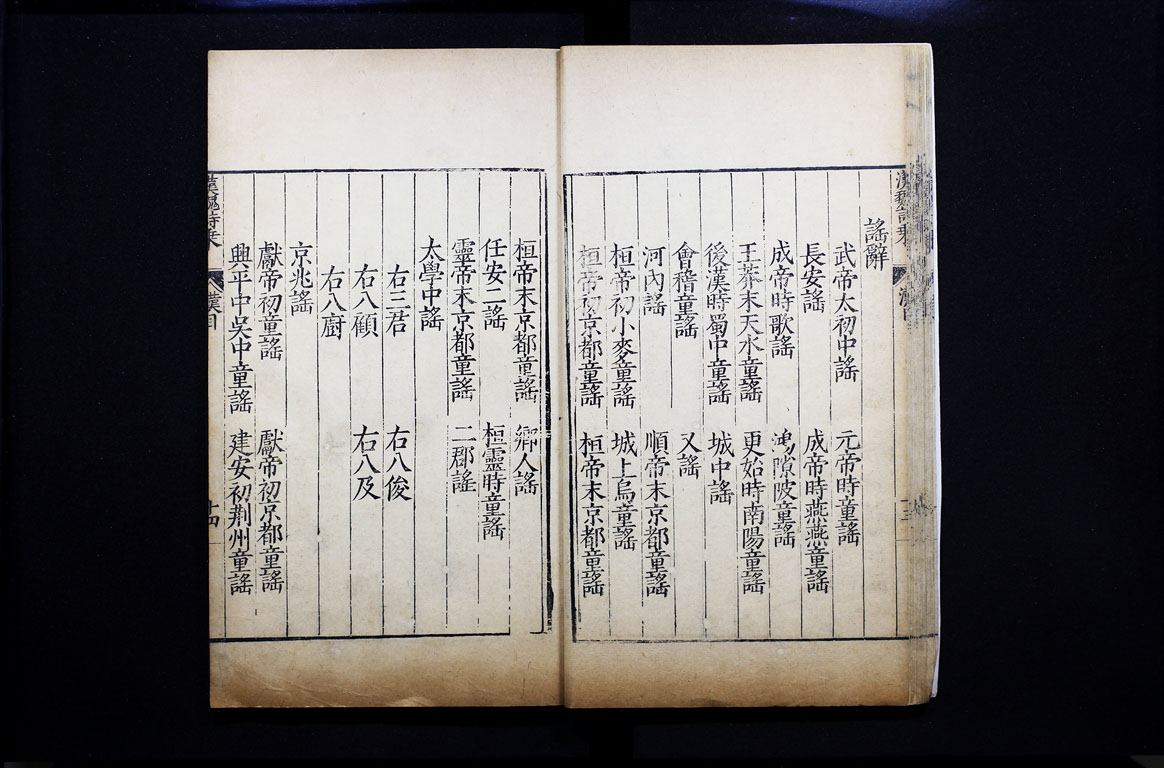 謠辭
武帝太初中謠　元帝時童謠
長安謠　成帝時燕燕童謠
成帝時歌謠　鴻隙陂童謠
王莽末天水童謠　更始時南陽童謠
後漢時蜀中童謠　城中謠
會稽童謠　又謠
河內謠　順帝末京都童謠
桓帝初小麥童謠　城上烏童謠
桓帝初京都童謠　桓帝末京都童謠
桓帝末京都童謠　鄉人謠
任安二謠　桓靈時童謠
靈帝末京都童謠　二郡謠
太學中謠
右三君　右八俊
右八顧　右八及
右八廚
京兆謠
獻帝初童謠　獻帝初京都童謠
興平中吳中童謠　建安初荆州童謠
漢魏詩乘　漢目　十四